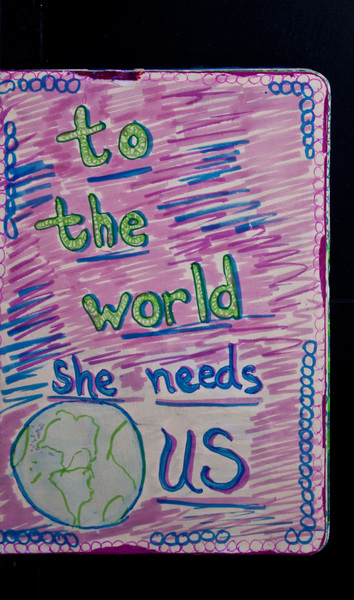 to
the
world
she needs
us